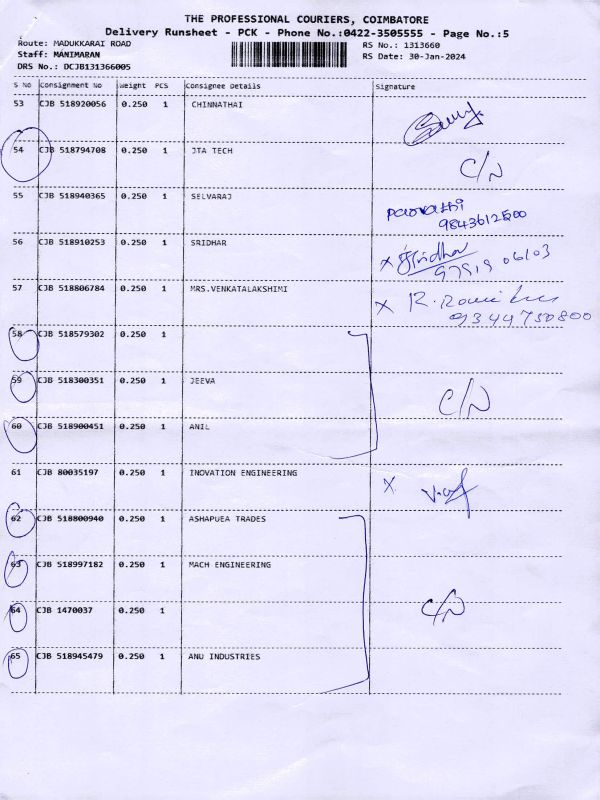 THE PROFESSIONAL COURIERS, COIMBATORE
Delivery Runsheet - PCK - Phone No.:0422-3505555 - Page No.:5
Route: MADUKKARAI ROAD
RS No.: 1313660
Staff: MANIMARAN
RS Date: 30-Jan-2024
DRS No.: DCJB131366005
S No Consignment No Weight PCS Consignee Details Signature
53 CJB 518920056 0.250 1 CHINNATHAI
54 CJB 518794708 0.250 1 JTA TECH C/N
55 CJB 518940365 0.250 1 SELVARAJ
9843612500
56 CJB 518910253 0.250 1 SRIDHAR X Sridhar
97919 06103
57 CJB 518806784 0.250 1 MRS.VENKATALAKSHIMI X R.
9344750800
58 CJB 518579302 0.250 1
59 CJB 518300351 0.250 1 JEEVA C/N
60 CJB 518900451 0.250 1 ANIL
61 CJB 80035197 0.250 1 INOVATION ENGINEERING X
62 CJB 518800940 0.250 1 ASHAPUEA TRADES
63 CJB 518997182 0.250 1 MACH ENGINEERING
64 CJB 1470037 0.250 1 C/N
65 CJB 518945479 0.250 1 ANU INDUSTRIES